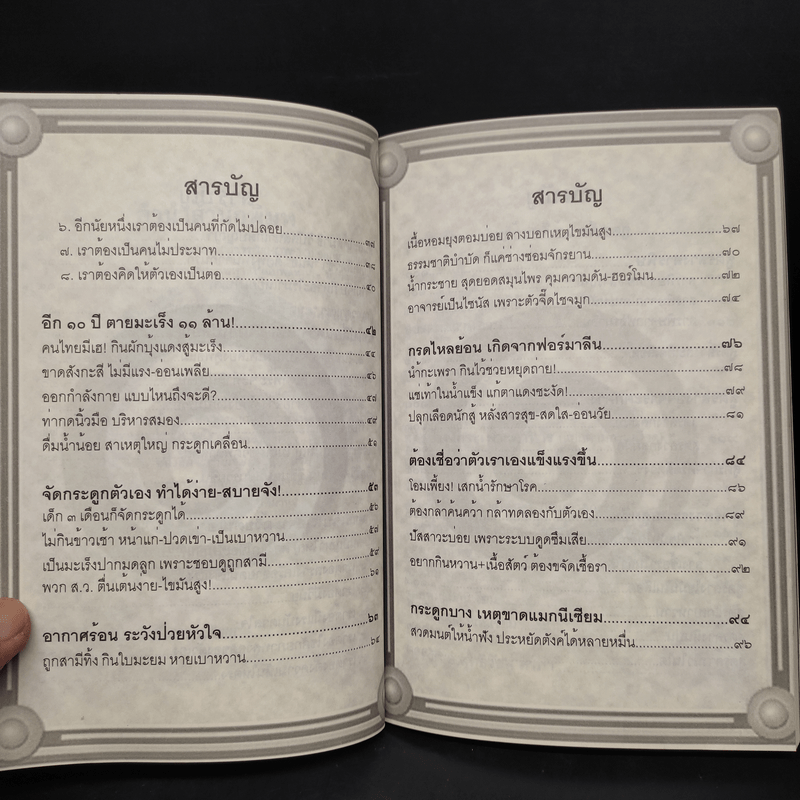 สารบัญ
๖. อีกนัยหนึ่งเราต้องเป็นคนที่กัดไม่ปล่อย........................๓๗
๗. เราต้องเป็นคนไม่ประมาท........................๓๘
๘. เราต้องคิดให้ตัวเองเป็นต่อ........................๔๐
อีก ๑๐ ปี ตายมะเร็ง ๑๑ ล้าน!........................๔๒
คนไทยมีเฮ! กินผักบุ้งแดงสู้มะเร็ง........................๔๔
ขาดสังกะสี ไม่มีแรง-อ่อนเพลีย........................๔๖
ออกกำลังกาย แบบไหนถึงจะดี?........................๔๗
ท่ากดนิ้วมือ บริหารสมอง........................๔๙
ดื่มน้ำน้อย สาเหตุใหญ่ กระดูกเคลื่อน........................๕๑
จัดกระดูกตัวเอง ทำได้ง่าย-สบายจัง!........................๕๓
เด็ก ๓ เดือนก็จัดกระดูกได้........................๕๖
ไม่กินข้าวเช้า หน้าแก่-ปวดเข่า-เป็นเบาหวาน........................๕๗
เป็นมะเร็งปากมดลูก เพราะชอบดูถูกสามี........................๕๙
พวก ส.ว. ตื่นเต้นงาย-ไขมันสูง!........................๖๑
อากาศร้อน ระวังป่วยหัวใจ........................๖๓
ถูกสามีทิ้ง กินใบมะยม หายเบาหวาน........................๖๔
สารบัญ
เนื้อหอมยุงตอมบ่อย ลางบอกเหตุไขมันสูง........................๖๗
ธรรมชาติบำบัด ก็แค่ช่างซ่อมจักรยาน........................๗๐
น้ำกระชาย สุดยอดสมุนไพร คุมความดัน-ฮอร์โมน........................๗๒
อาจารย์เป็นไซนัส เพราะตัวจี๊ดไชจมูก........................๗๔
กรดไหลย้อน เกิดจากฟอร์มาลีน........................๗๖
น้ำกะเพรา กินไว้ช่วยหยุดถ่าย!........................๗๘
แช่เท้าในน้ำแข็ง แก้ตาแดงชะงัด!........................๗๙
ปลุกเลือดนักสู้ หลั่งสารสุข-สดใส-อ่อนวัย........................๘๑
ต้องเชื่อว่าตัวเราเองแข็งแรงขึ้น........................๘๔
โอมเพี้ยง! เสกน้ำรักษาโรค........................๘๖
ต้องกล้าค้นคว้า กล้าทดลองกับตัวเอง........................๘๙
ปัสสาวะบ่อย เพราะระบบดูดซึมเสีย........................๙๑
อยากกินหวาน+เนื้อสัตว์ ต้องขจัดเชื้อรา........................๙๒
กระดูกบาง เหตุขาดแมกนีเซียม........................๙๔
สวดมนต์ให้น้ำฟัง ประหยัดตังค์ได้หลายหมื่น........................๙๖